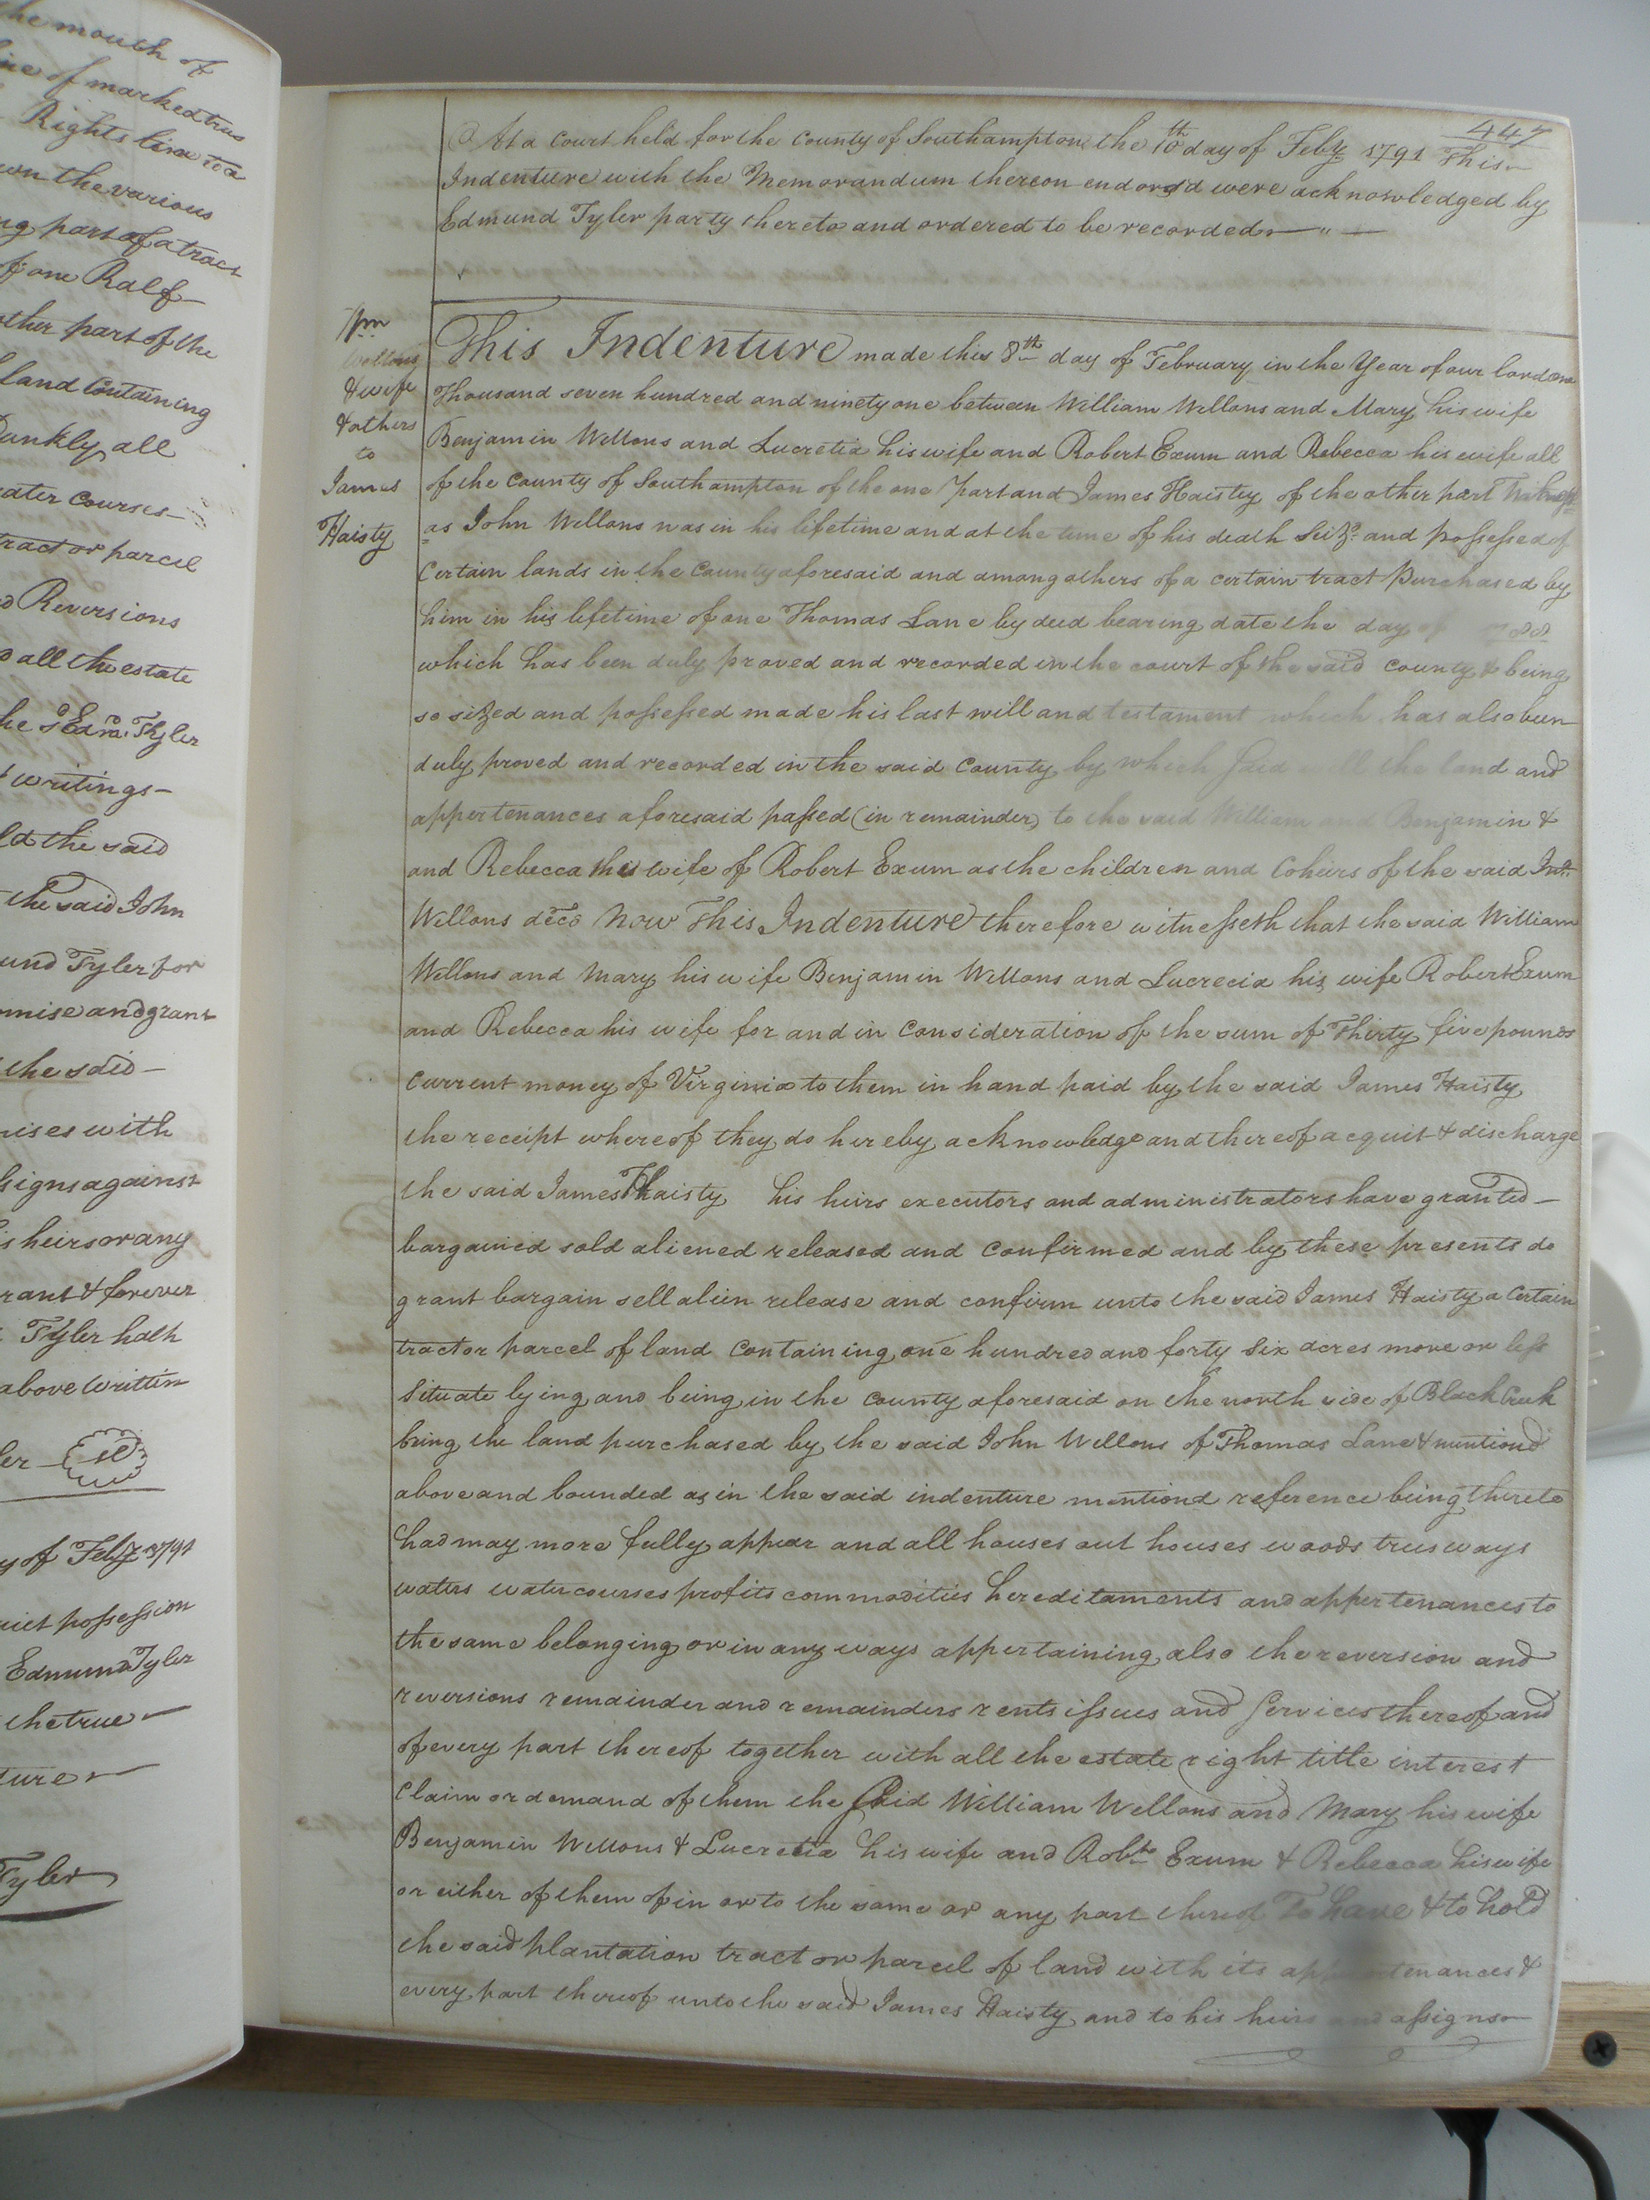 the mouth of
line of marked trees
Rights line to a
down the various
ing part of a tract
of one Ralf
other part of the
land Containing
Dunkly all
water Courses
tract or parcel
Reversions
all the estate
the sd Edmd. Tyler
writings
the said
the said John
und Tyler for
mise and grant
the said
mises with
signs against
is heirs or any
rant & forever
Tyler hath
above written
ler
y of Feby 1791
uiet possession
Edmund Tyler
the true
ture
Tyler
447
At a Court held for the County of Southampton the 10th day of Feby 1791 This
Indenture with the Memorandum thereon endorsd were acknowledged by
Edmund Tyler party thereto and ordered to be recorded
Wm
Wellons
& wife
& others
to
James
Haisty
This Indenture made this 8th day of February in the Year of our lord one
Thousand seven hundred and ninety one between William Wellons and Mary his wife
Benjamin Wellons and Lucretia his wife and Robert Exum and Rebecca his wife all
of the County of Southampton of the one part and James Haisty of the other part
as John Wellons was in his lifetime and at the time of his death Seizd and possessed of
Certain lands in the County aforesaid and among others of a certain tract Purchased by
him in his lifetime of one Thomas Lane by deed bearing date the day of
which has been duly proved and recorded in the court of the said County & being
so sized and possessed made his last will and testament which has also been
duly proved and recorded in the said County by which said will the land and
appertenances aforesaid passed (in remainder) to the said William and Benjamin &
and Rebecca the wife of Robert Exum as the children and Coheirs of the said Jno.
Wellons decd Now This Indenture therefore witnesseth that the said William
Wellons and Mary his wife Benjamin Wellons and Lucrecia his wife Robert Exum
and Rebecca his wife for and in Consideration of the sum of Thirty five pounds
Current money of Virginia to them in hand paid by the said James Haisty
the receipt whereof they do hereby acknowledge and thereof acquit & discharge
the said James Haisty his heirs executors and administrators have granted
bargained sold aliened released and Confirmed and by these presents do
grant bargain sell alien release and confirm unto the said James Haisty a Certain
tract or parcel of land Containing one hundred and forty Six acres more or less
Situate lying and being in the County aforesaid on the north side of Black Creek
being the land purchased by the said John Wellons of Thomas Lane & mentiond
above and bounded as in the said indenture mentiond reference being thereto
had may more fully appear and all houses out houses woods trees ways
waters watercourses profits commodities hereditaments and appertenances to
the same belonging or in any ways appertaining also the reversion and
reversions remainder and remainders rents issues and Services thereof and
of every part thereof together with all the estate right title interest
Claim or demand of them the Said William Wellons and Mary his wife
Benjamin Wellons & Lucretia his wife and Robt. Exum & Rebecca his wife
or either of them of in or to the same or any part thereof To have & to hold
the said plantation tract or parcel of land with its appertenances &
every part thereof unto the said James Haisty and to his heirs and assigns